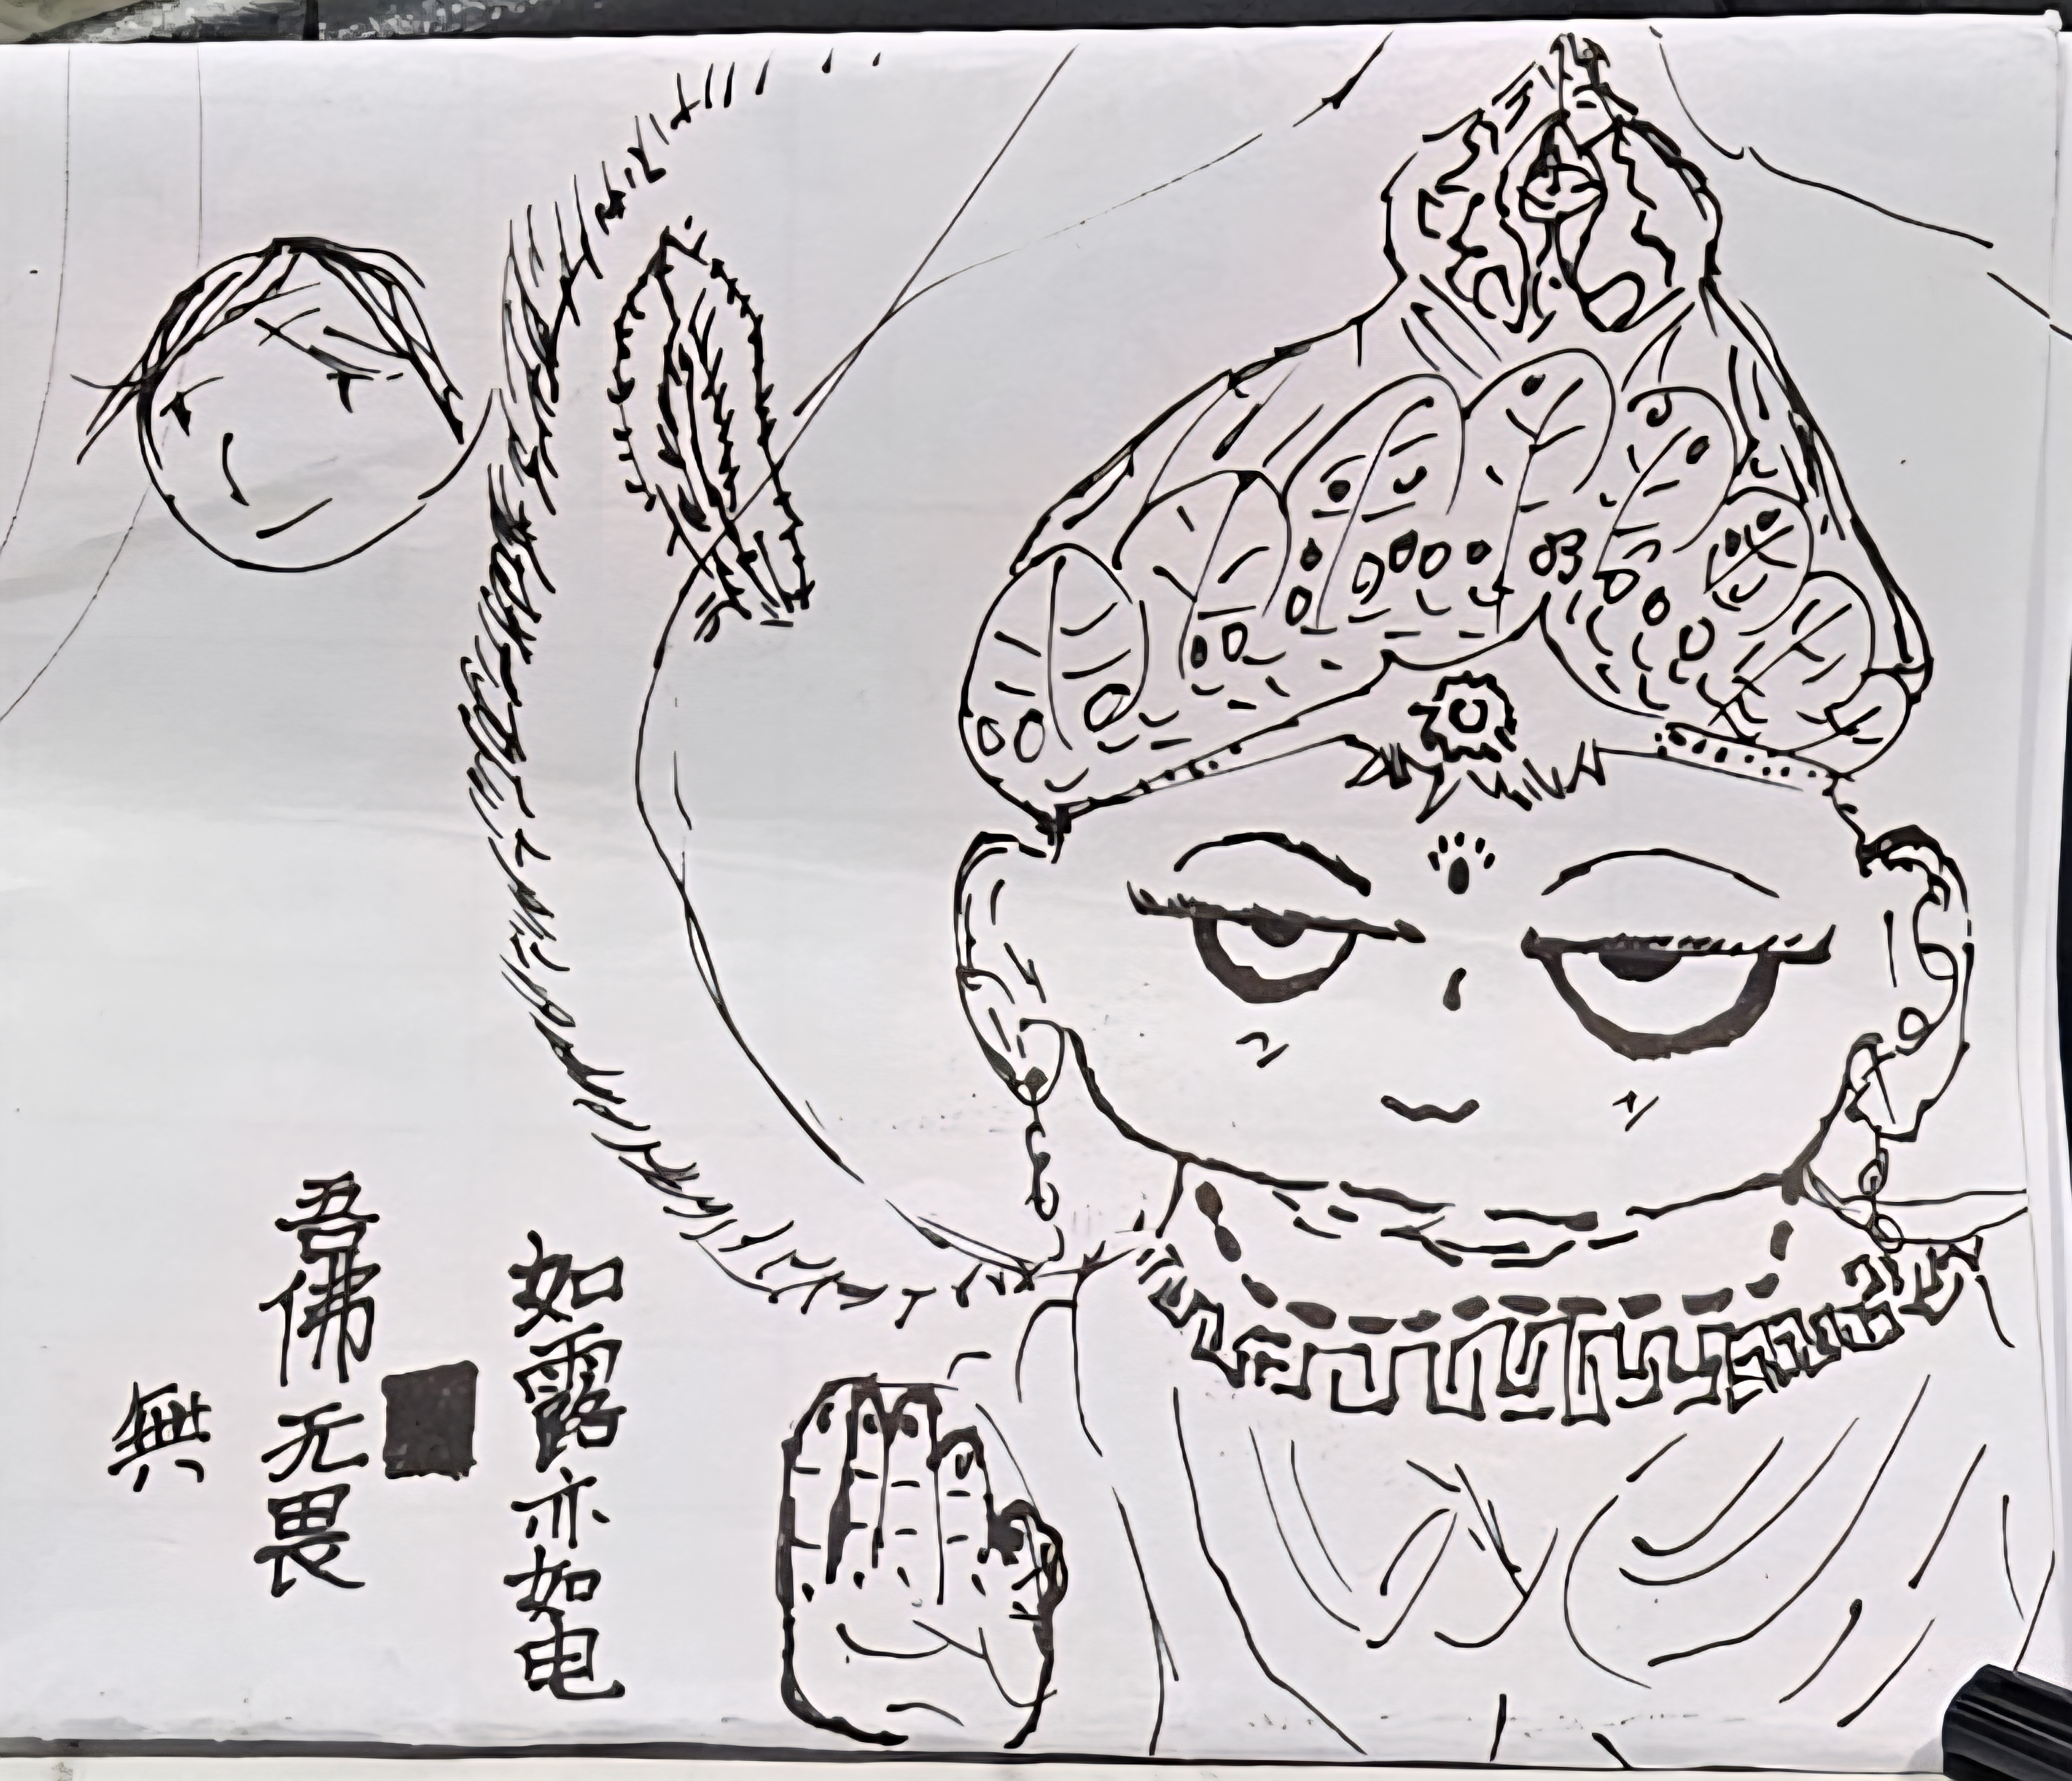 如露亦如电
吾佛无畏
無